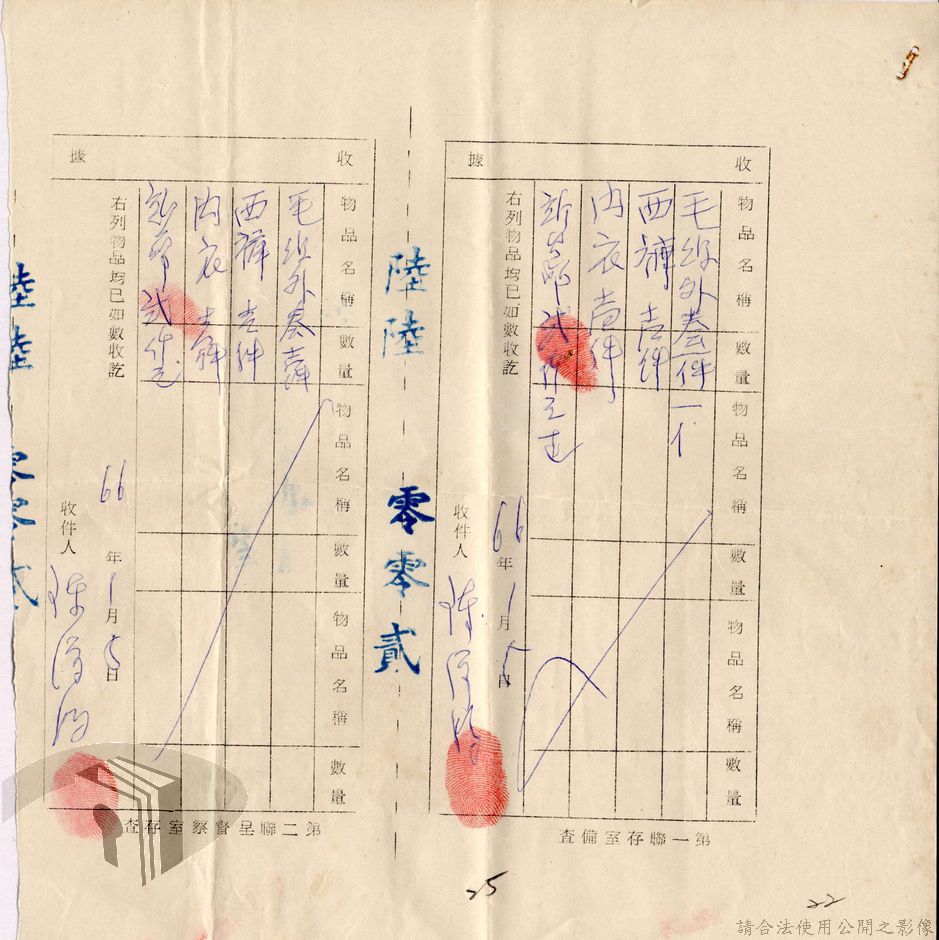 收據
物品名稱 數量 物品名稱 數量 物品名稱 數量
毛線外套一件
西褲壹件
內衣壹件
右列物品均已如數收訖
66年1月5日
收件人 陳
第一聯存室備查
陸陸 零零貳
收據
物品名稱 數量 物品名稱 數量 物品名稱 數量
毛線外套壹件
西褲壹件
內衣壹件
右列物品均已如數收訖
66年1月5日
收件人 陳
第二聯呈督察室存查
陸陸 零零貳
25
22
請合法使用公開之影像